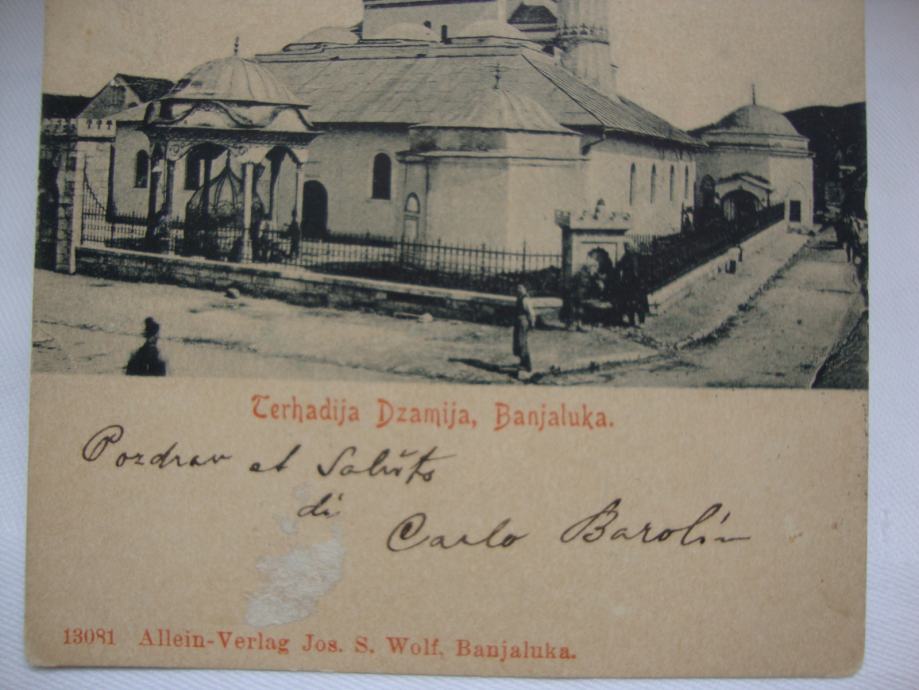 Terhadija Dzamija, Banjaluka.
Pozdrav et Saluto
di
Carlo Barolin
13081 Allein-Verlag Jos. S. Wolf, Banjaluka.